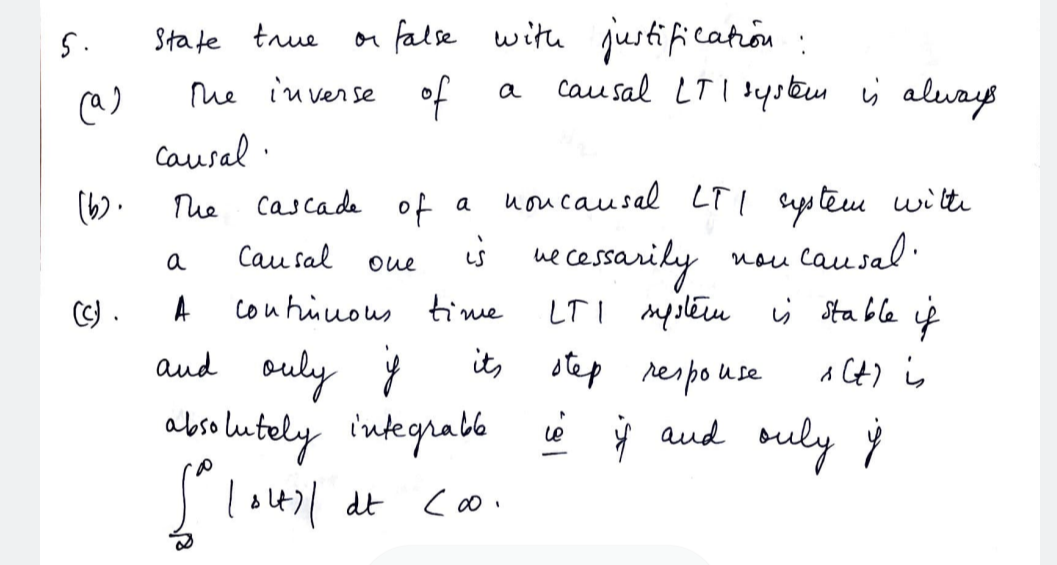 5. State true or false with justification :
(a) The inverse of a causal LTI system is always
causal.
(b). The cascade of a noncausal LTI system with
a causal one is necessarily noncausal.
(c). A continuous time LTI system is stable if
and only if its step response s(t) is
absolutely integrable ie if and only if
∫_∞^∞ |s(t)| dt < ∞.